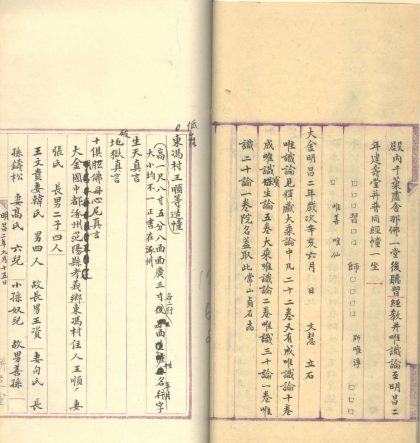 殿內千葉盧舍那佛一堂後聽習經教并唯識論至明昌二
年建壽堂并并同經幢一坐
師
唯善 唯仙
大金明昌二年歲次辛亥六月 日 文慧 立石
唯識論見釋藏大乘論中凡二十二卷又有成唯識論十卷
成唯識寶生論五卷大乘唯識論二卷唯識三十論一卷唯
識二十論一卷院名蓋取此常山貞石志
低一格
東馮村王順等造幢
高一尺八寸五分八面面廣三寸後
大小均不一正書在涿州
生天真言
破地獄真言
十俱胝佛母心尼真言
大金國中都涿州范陽縣孝義鄉東馮村住人王順 妻
張氏 長男二子四人
王文貴妻韓氏 男四人 故長男王資 妻向氏 長
孫鑄松 妻高氏 六兒 小孫奴兒 故男善孫
明昌二年九月十五日